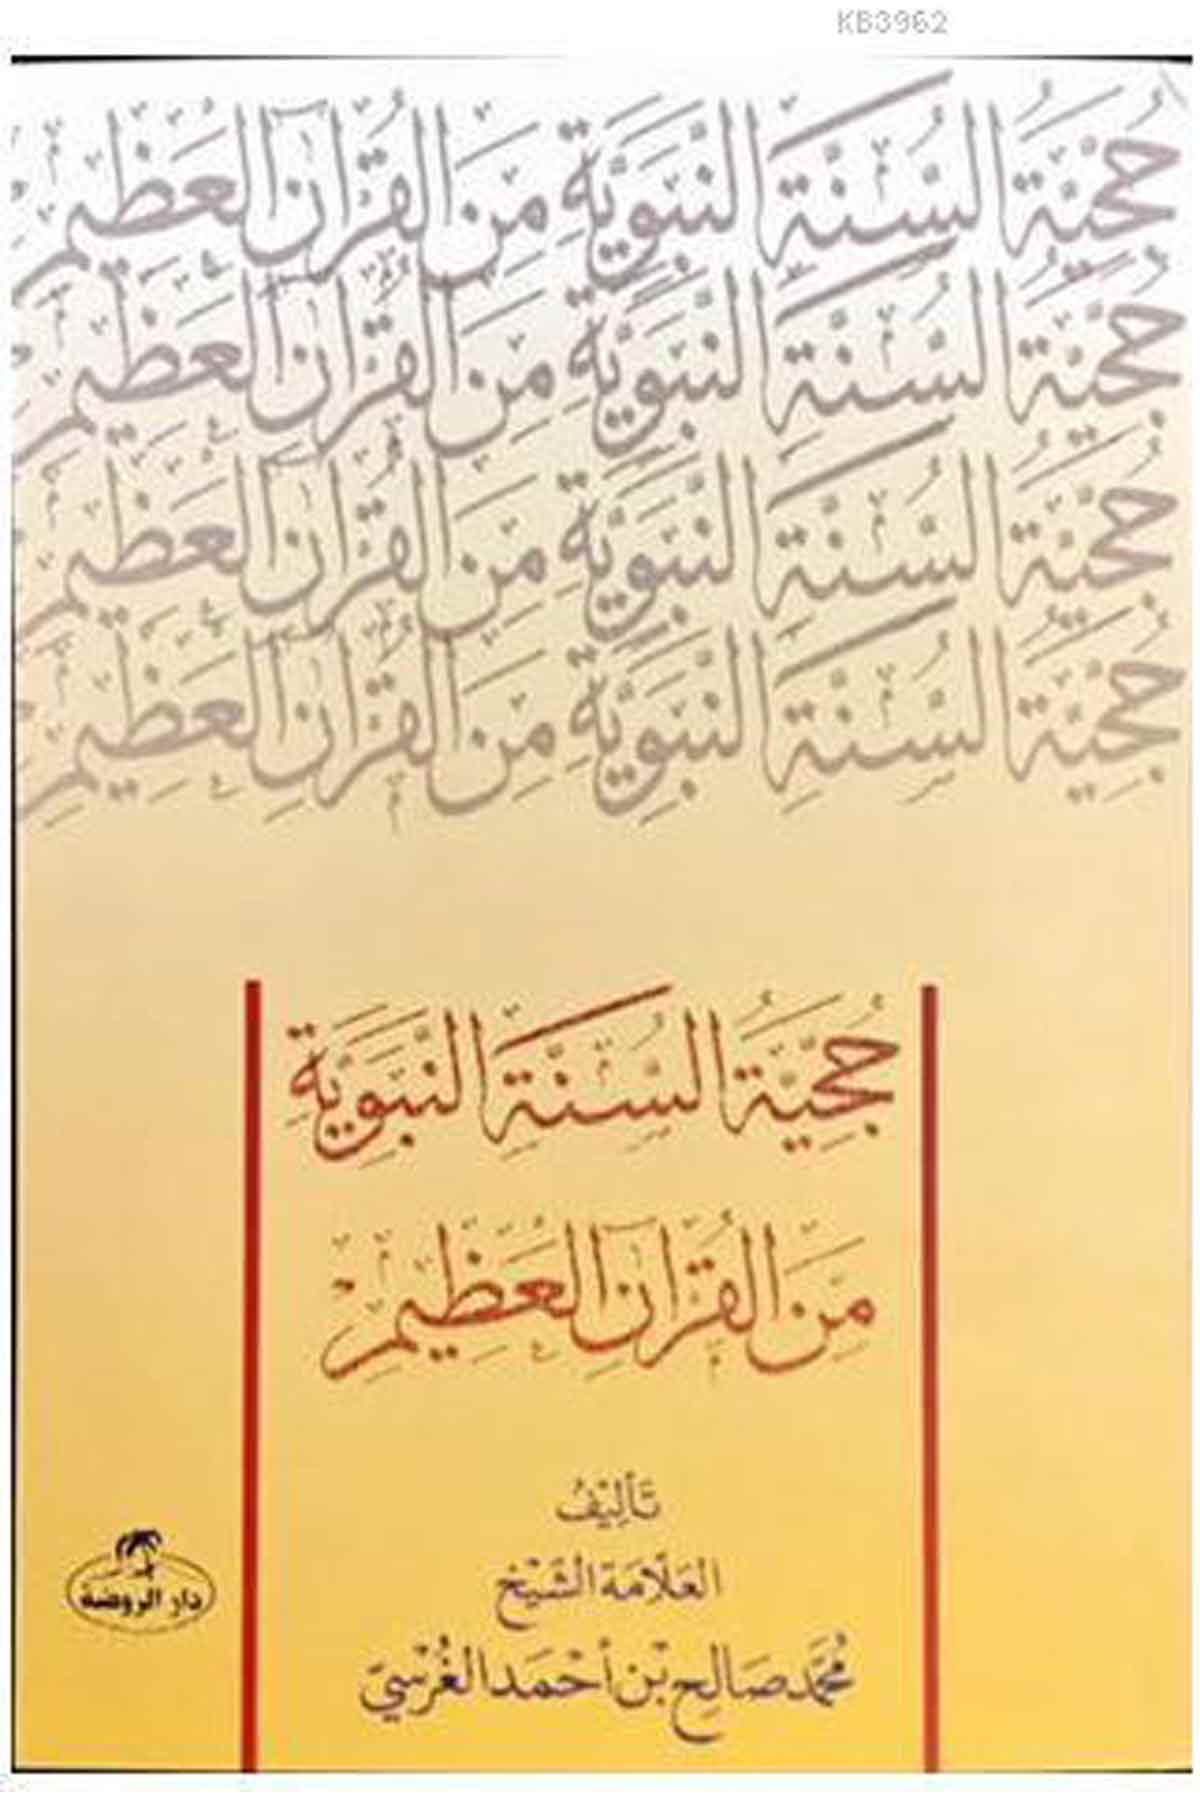 KB3962
حُجِّيَّةُ السُّنَّةِ النَّبَوِيَّةِ مِنَ الْقُرْآنِ الْعَظِيمِ
حُجِّيَّةُ السُّنَّةِ النَّبَوِيَّةِ مِنَ الْقُرْآنِ الْعَظِيمِ
حُجِّيَّةُ السُّنَّةِ النَّبَوِيَّةِ مِنَ الْقُرْآنِ الْعَظِيمِ
حُجِّيَّةُ السُّنَّةِ النَّبَوِيَّةِ مِنَ الْقُرْآنِ الْعَظِيمِ
حُجِّيَّةُ السُّنَّةِ النَّبَوِيَّةِ
مِنَ الْقُرْآنِ الْعَظِيمِ
تَأْلِيْفُ
العَلَّامَة الشَّيْخ
مُحَمَّد صَالِح بْن أَحْمَد الغُرْسِيّ
دار الروضة